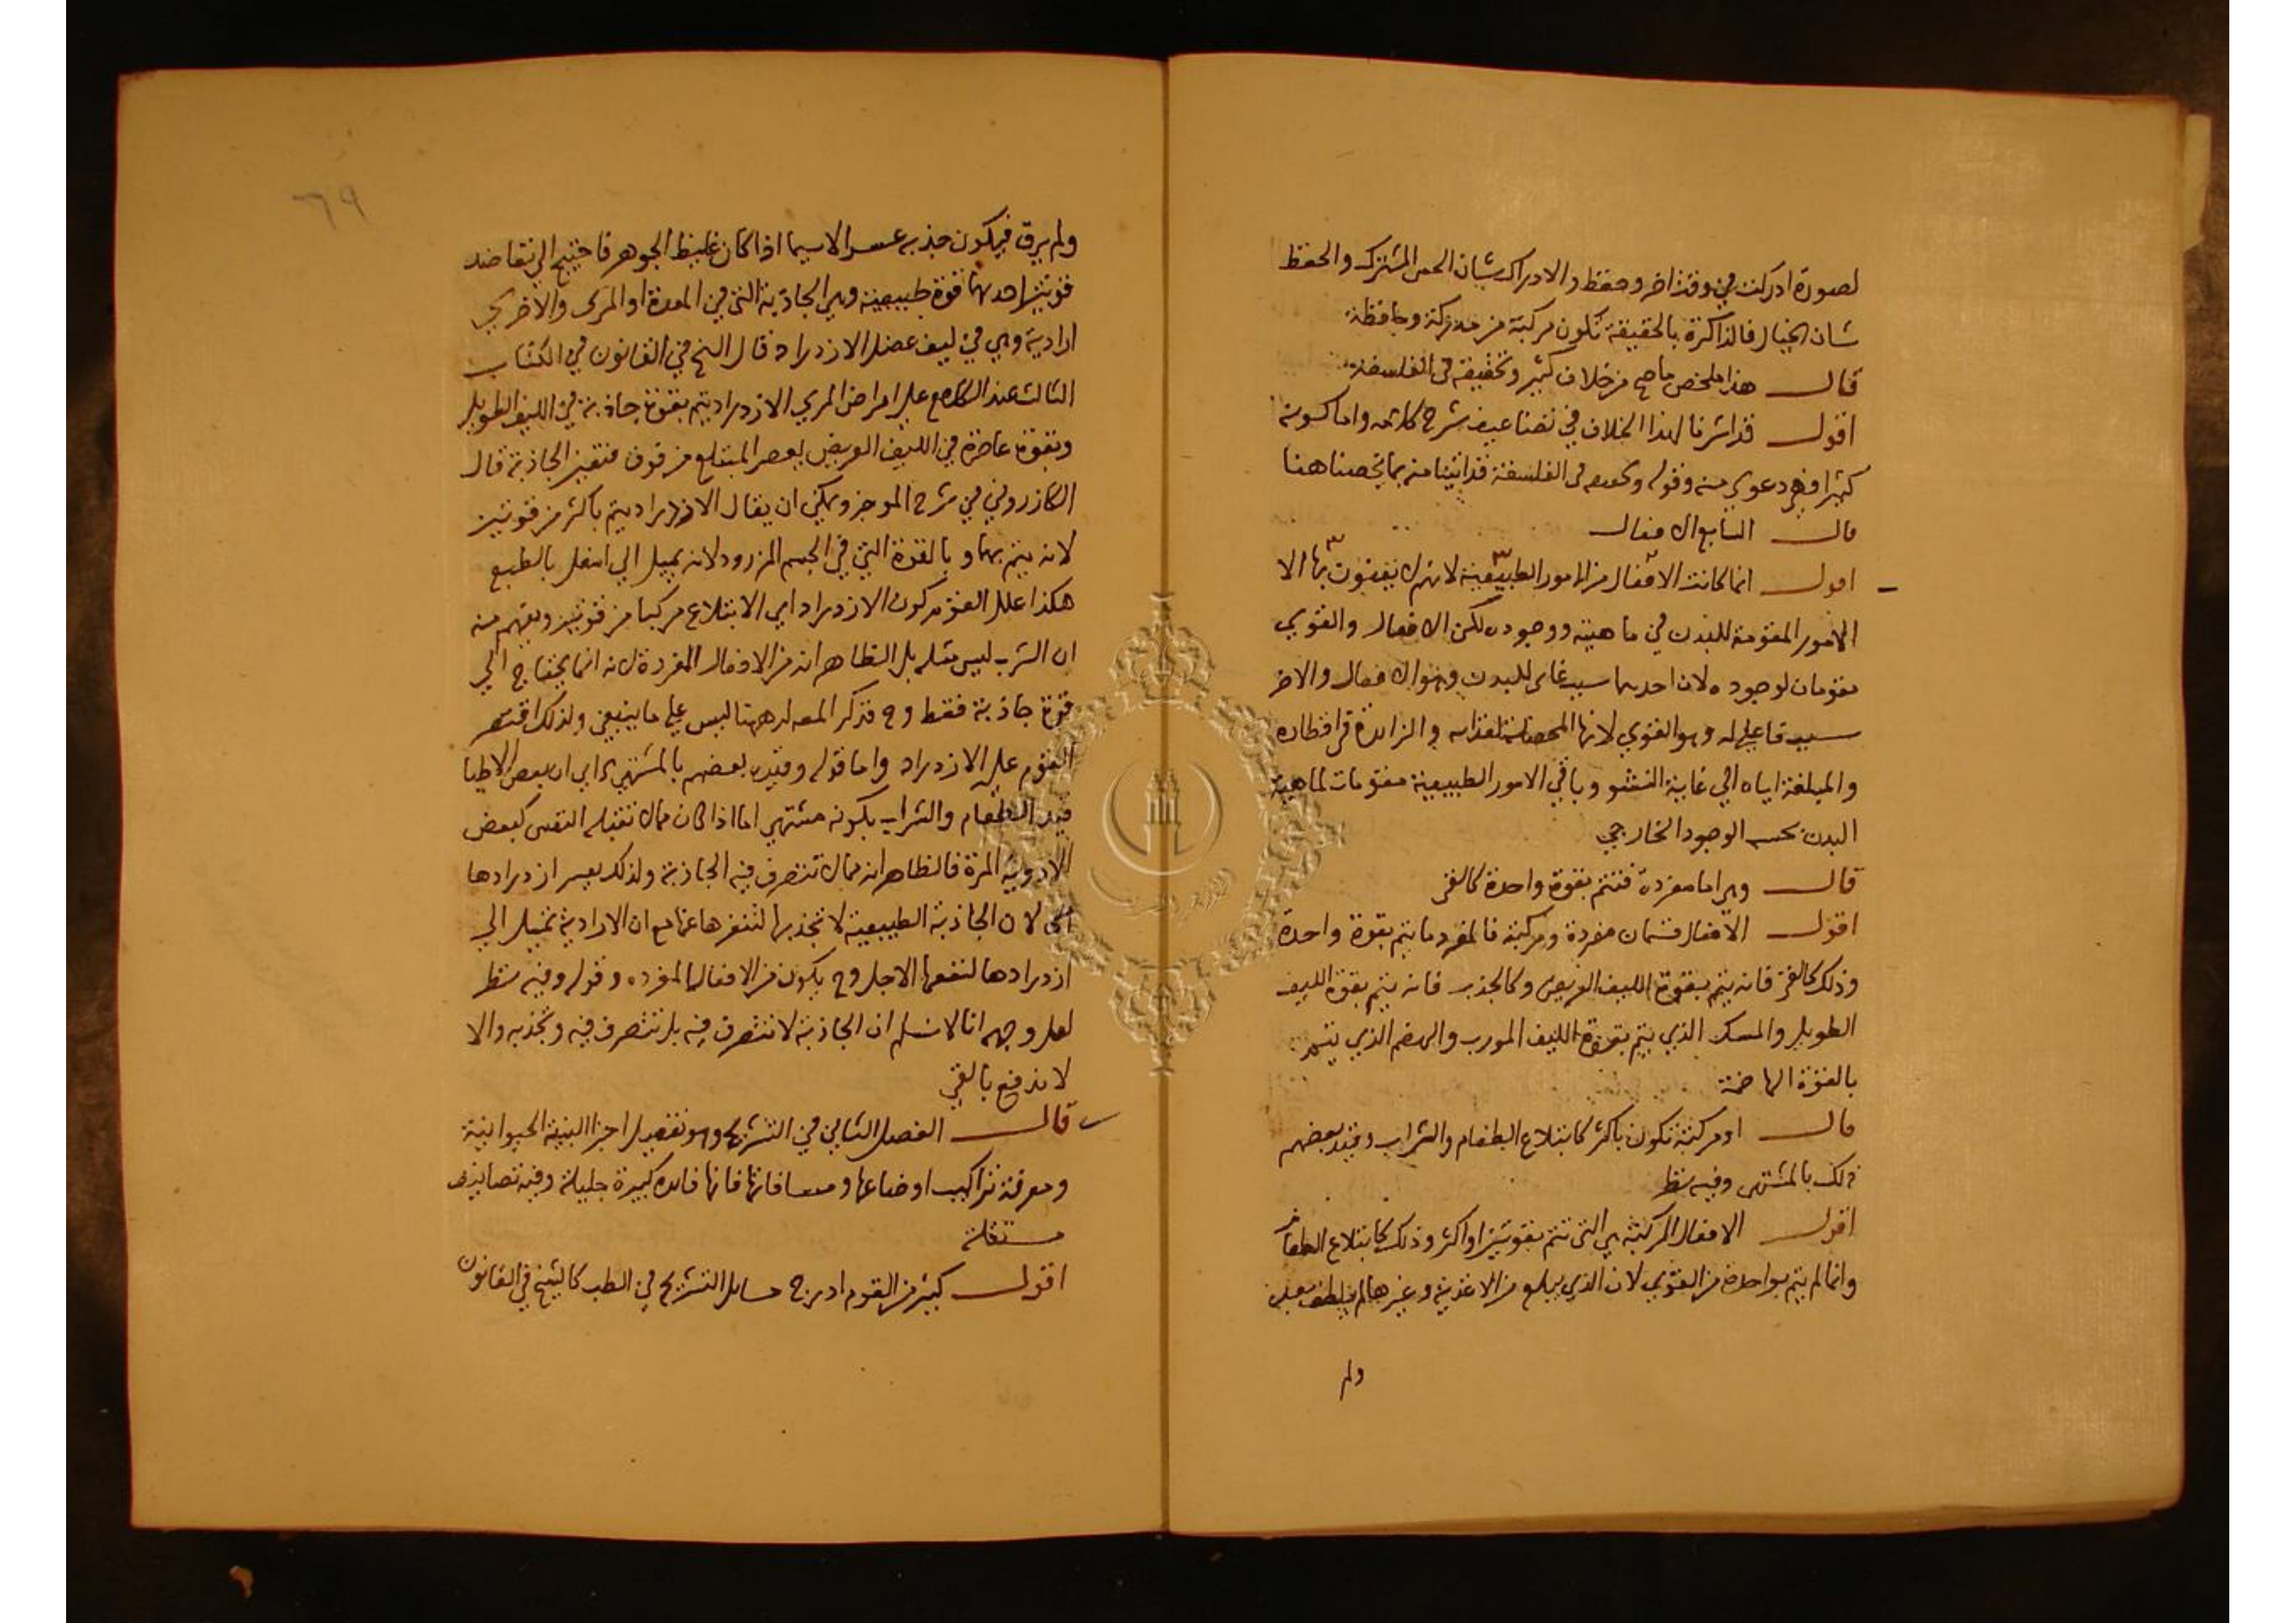 لصورة ادركت في وقت اخر وحفظ والادراك شان الحس المشترك والحفظ
شان الخيال فالذاكرة بالحقيقة تكون مركبة من مدركة وحافظة
قال هذا ملخص ما صح من خلاف كثير وتحقيقه في الفلسفة
اقول قد اشرنا لهذا الخلاف في تضاعيف شرح كلامه واما كونه
كثيرا فهي دعوي منه وقوله وتحقيقه في الفلسفة قد اتينا منه بما يخصنا هنا
قال السابع الافعال
اقول انما كانت الافعال من الامور الطبيعية لانهم لا يعنون بها الا
الامور المقومة للبدن في ماهيته ووجوده لكن الافعال والقوي
مقومان لوجوده لان احدهما سبب غائي للبدن وهو الافعال والاخر
سبب فاعلي له وهو القوي لانها المحصلة لغذائه والزائدة في اقطاره
والمبلغة اياه الي غاية النشو وباقي الامور الطبيعية مقومات لماهية
البدن بحسب الوجود الخارجي
قال وهي اما مفردة فتتم بقوة واحدة كالقي
اقول الافعال قسمان مفردة ومركبة فالمفرد ما يتم بقوة واحدة
وذلك كالقي فانه يتم بقوة الليف العريض وكالجذب فانه يتم بقوة الليف
الطويل والمسك الذي يتم بقوة الليف المورب والهضم الذي يتم
بالقوة الهاضمة
قال او مركبة تكون باكثر كابتلاع الطعام والشراب وقيد بعضهم
ذلك بالمشتهي وفيه نظر
اقول الافعال المركبة هي التي تتم بقوتين او اكثر وذلك كابتلاع الطعام
وانما لم يتم بواحدة من القوي لان الذي يبلع من الاغذية وغيرها لم يلطف
ولم
٦٩
ولم يرق فيكون جذبه عسرا لاسيما اذا كان غليظ الجوهر فاحتيج الي تعاضد
قوتين احدهما قوة طبيعية وهي الجاذبة التي في المعدة او المري والاخري
ارادية وهي في ليف عضل الازدراد قال الشيخ في القانون في الكتاب
الثالث عند الكلام علي امراض المري الازدراد يتم بقوة جاذبة في الليف الطويل
وبقوة عاصرة في الليف العريض يعصر المبتلع من فوق فتعين الجاذبة قال
الكازروني في شرح الموجز ويمكن ان يقال الازدراد يتم باكثر من قوتين
لانه يتم بهما وبالقوة التي في الجسم المزرود لانه يميل الي اسفل بالطبع
هكذا علل القوم كون الازدراد اي الابتلاع مركبا من قوتين ويفهم منه
ان الشرب ليس مثله بل الظاهر انه من الافعال المفردة لانه انما يحتاج الي
قوة جاذبة فقط وح فذكر المصه له ههنا ليس علي ما ينبغي ولذلك اقتصر
القوم علي الازدراد واما قوله وقيده بعضهم بالمشتهي اي ان بعض الاطبا
قيد الطعام والشراب بكونه مشتهي اما اذا كان مما لا تقبله النفس كبعض
الادوية المرة فالظاهر انه مما لا تتصرف فيه الجاذبة ولذلك يعسر ازدرادها
اي لان الجاذبة الطبيعية لا تجذبها لتنفرها عنها مع ان الارادية تميل الي
ازدرادها لنفعها الاجل وح يكون من الافعال المفرده وقوله وفيه نظر
لعل وجهه انا لا نسلم ان الجاذبة لا تتصرف فيه بل تتصرف فيه وتجذبه والا
لاندفع بالقي
قال الفصل الثاني في التشريح وهو تفصيل اجزا البنية الحيوانية
ومعرفة تراكيب اوضاعها ومسافاتها فانها فائده كبيرة جليلة وفيه تصانيف
مستقلة
اقول كثير من القوم ادرج مسائل التشريح في الطب كالشيخ في القانون